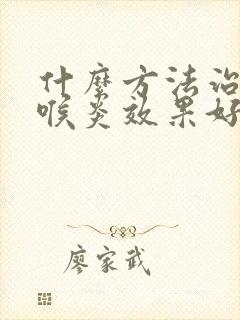 什麼方法治
喉炎效果好
廖家武